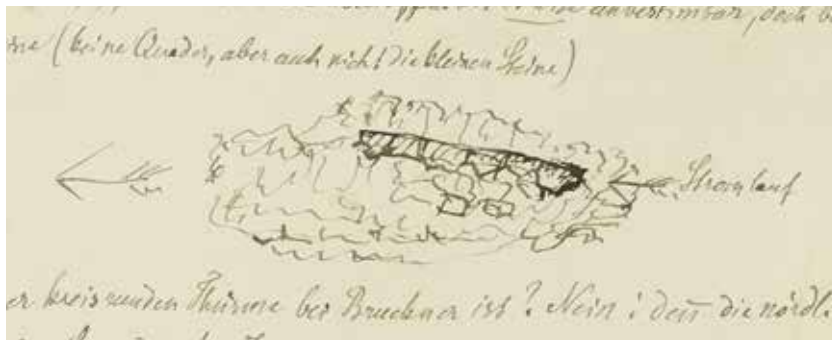 unbestimbar, doch
(keine Quader, aber auch nicht die kleinen Steine)
Stromlauf
er kreisrunden Thürme bei Bruckner ist? Nein! den̄ die nördl.